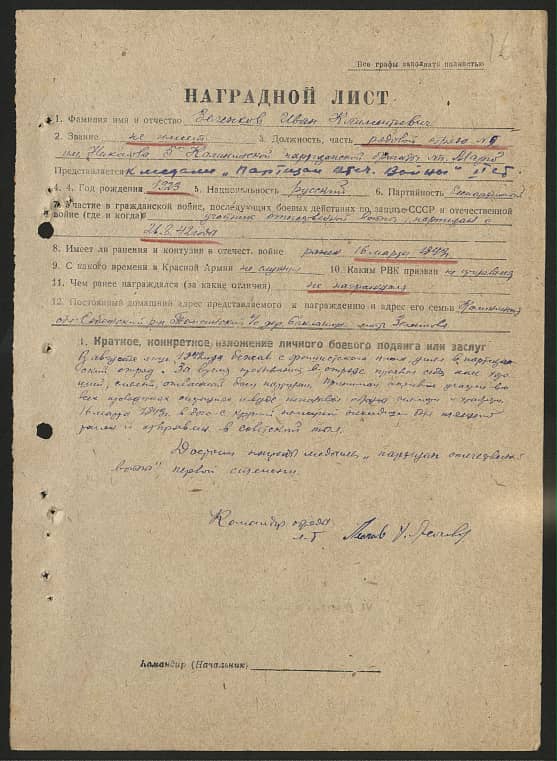 16
Все графы заполнять полностью
НАГРАДНОЙ ЛИСТ
1. Фамилия имя и отчество Зеленков Иван Климентьевич
2. Звание не имеет 3. Должность, часть рядовой отряд
5 Калининской партизанской бригады
Представляется к медали „Партизан отеч. войны" II ст.
4. 4. Год рождения 1923 5. Национальность Русский 6. Партийность беспартийный
7. Участие в гражданской войне, последующих боевых действиях по защите СССР и отечественной
войне (где и когда) участник отечественной войны, партизан с
26.8.42 года
8. Имеет ли ранения и контузии в отечест. войне ранен 16 марта 1943г.
9. С какого времени в Красной Армии не служил 10. Каким РВК призван не призван
11. Чем ранее награждался (за какие отличия) не награждался
12. Постоянный домашний адрес представляемого к награждению и адрес его семьи Калининская
обл. р-н с/с дер.
I. Краткое, конкретное изложение личного боевого подвига или заслуг
В августе м-це 1942 года бежав с тыла ушел в партизан-
ский отряд. За время пребывания в отряде проявил себя как
смелый, партизан. Принимал активное участие во
всех проводимых операциях
16 марта 1943г. в бою с крупной экспедицией был
ранен и отправлен в советский тыл.
Достоин награды медалью „партизан отечественной
войны" первой степени.
Командир отряда
Командир (Начальник)